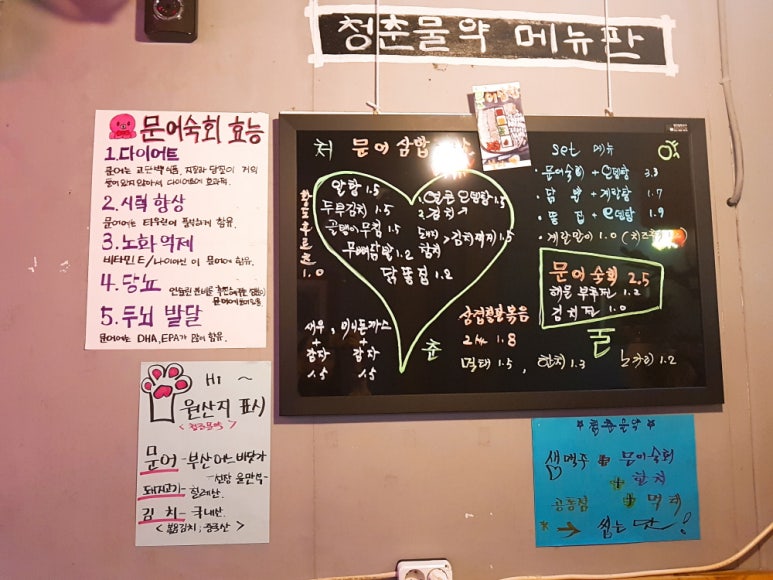 청춘물약 메뉴판
문어숙회 효능
1. 다이어트
문어는 고단백 식품, 지방과 당질이 거의
들어있지않아서 다이어트에 효과적.
2. 시력 향상
문어에는 타우린이 풍부하게 함유.
3. 노화 억제
비타민E/나이아신이 문어에 함유.
4. 당뇨
5. 두뇌 발달
문어에는 DHA, EPA가 많이 함유.
Hi ~
원산지 표시
< 청춘물약 >
문어 - 부산 어느 바닷가
돼지고기 - 칠레산.
김 치 - 국내산.
< 볶음김치; 중국산 >
처 문어삼합
알탕 1.5
두부김치 1.5
골뱅이무침 1.5
무뼈닭발 1.2
닭똥집 1.2
1. 얼큰 오뎅탕 1.5
2. 김치 〃
돼지
참치 > 김치찌개 1.5
황도후르츠
1.0
새우
+
감자
1.5
미니돈까스
+
감자
1.5
춘
삼겹활활볶음
1.8
먹태 1.5, 한치 1.3 노가리 1.2
set 메뉴
· 문어숙회 + 오뎅탕 3.3
· 닭발 + 계란탕 1.7
· 똥집 + 오뎅탕 1.9
· 계란말이 1.0 (치즈
문어숙회 2.5
해물부추전 1.2
김치전 1.0
물
약
* 청춘물약 *
생맥주 + 문어숙회
+ 한치
공통점 + 먹태
* → 씹는 맛!